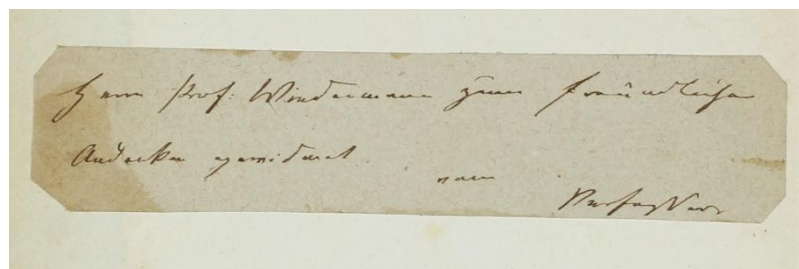 Herrn Prof. Wiedemann zum freundlichen
Andenken gewidmet
vom
Verfasser